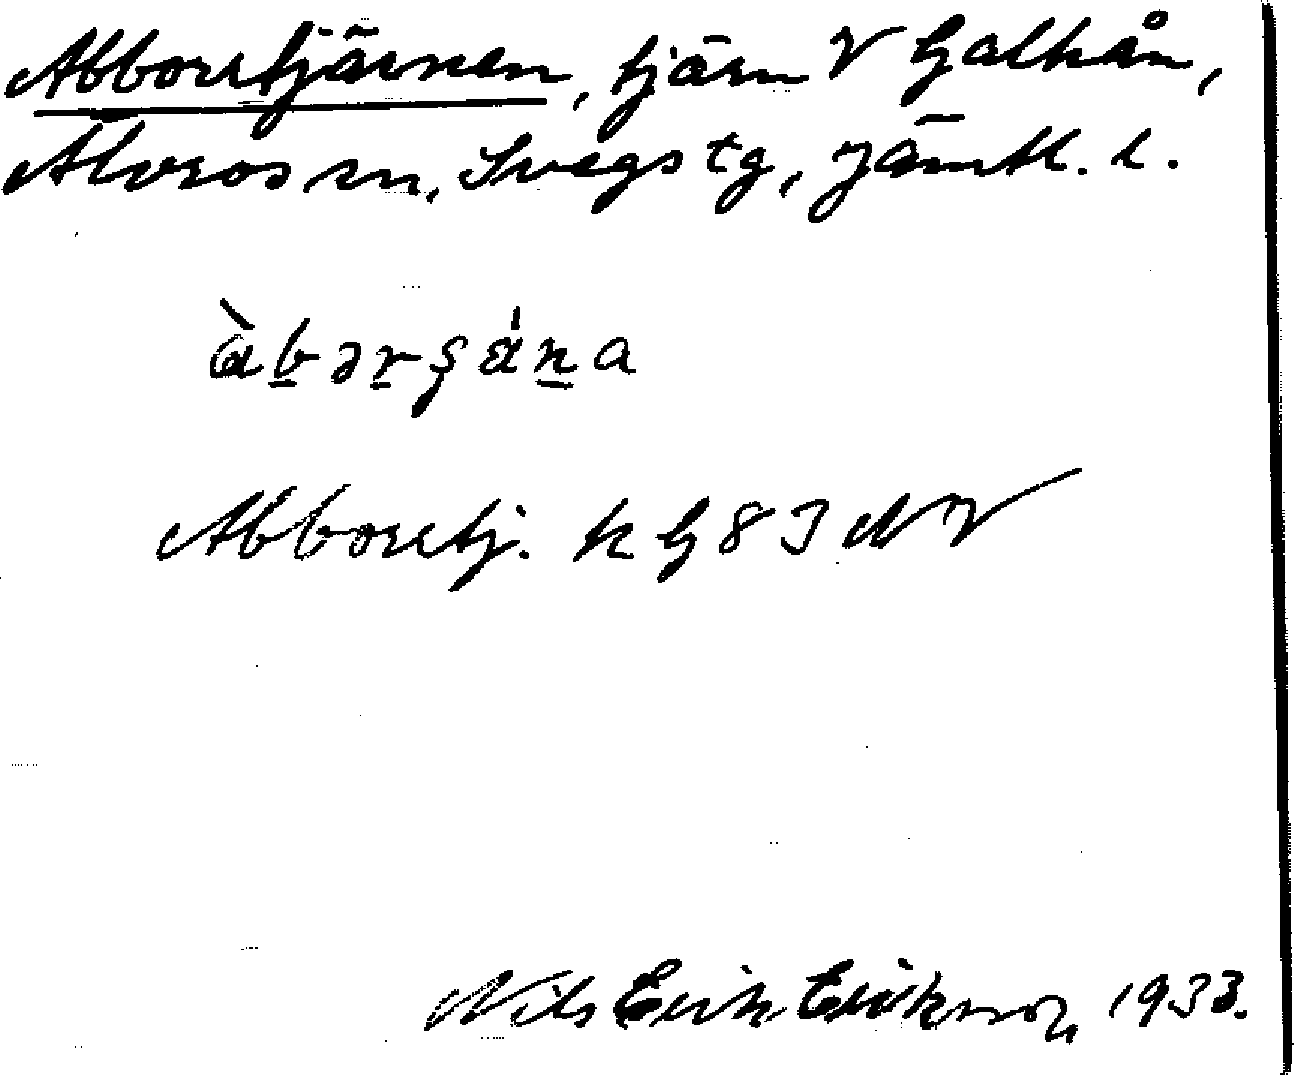 Abborrtjärnen, tjärn V Galkån,
Älvros sn, Svegs tg, Jämtl. l.
Abborrtj. k G 83 NV
Nils Erik Eriksson, 1933.